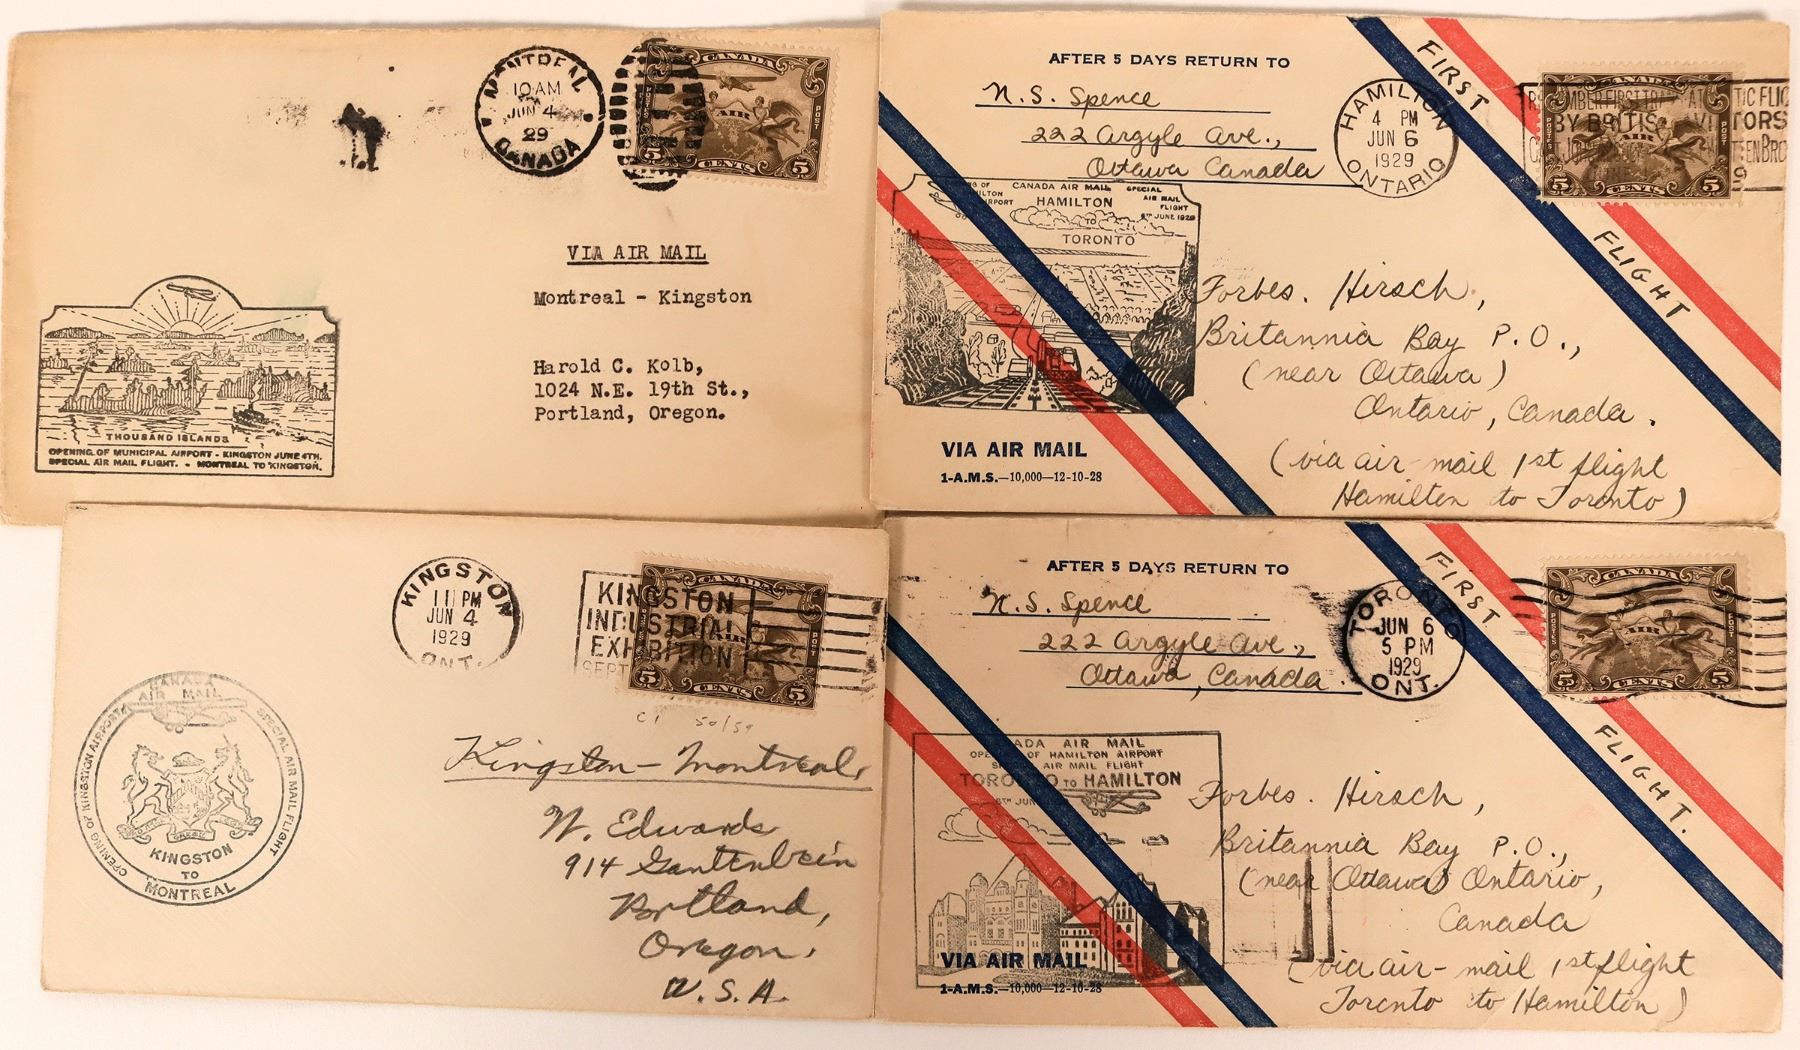 MONTREAL
10 AM
JUN 4
29
CANADA
CANADA
POSTES
POST
AIR
5 CENTS 5
VIA AIR MAIL
Montreal - Kingston
Harold C. Kolb,
1024 N.E. 19th St.,
Portland, Oregon.
THOUSAND ISLANDS
OPENING OF MUNICIPAL AIRPORT - KINGSTON JUNE 4TH.
SPECIAL AIR MAIL FLIGHT. - MONTREAL TO KINGSTON.
AFTER 5 DAYS RETURN TO
N. S. Spence
222 Argyle Ave.,
Ottawa Canada
FIRST
FLIGHT
HAMILTON
4 PM
JUN 6
1929
ONTARIO
BY BRITIS
CANADA
POSTES
POST
5 CENTS 5
CANADA AIR MAIL
SPECIAL
AIR MAIL
FLIGHT
6TH JUNE 1929
HAMILTON
TO
TORONTO
Forbes. Hirsch,
Britannia Bay P.O.,
(near Ottawa)
Ontario, Canada.
(via air-mail 1st flight
Hamilton to Toronto)
VIA AIR MAIL
1-A.M.S.—10,000—12-10-28
KINGSTON
11 PM
JUN 4
1929
ONT.
KINGSTON
INDUSTRIAL
EXHIBITION
SEPT
CANADA
AIR
POST
5 CENTS 5
C1 50/50
CANADA
AIR MAIL
OPENING OF KINGSTON AIRPORT
SPECIAL AIR MAIL FLIGHT
KINGSTON
TO
MONTREAL
Kingston - Montreal.
W. Edwards
914 Gantenbein
Portland,
Oregon.
U.S.A.
AFTER 5 DAYS RETURN TO
N. S. Spence
222 Argyle Ave.,
Ottawa, Canada.
FIRST
FLIGHT.
TORONTO
JUN 6
5 PM
1929
ONT.
CANADA
POSTES
POST
AIR
5 CENTS 5
ADA AIR MAIL
OF HAMILTON AIRPORT
AIR MAIL FLIGHT
TORONTO TO HAMILTON
6TH JUN
Forbes. Hirsch,
Britannia Bay P.O.,
(near Ottawa) Ontario,
Canada
(via air-mail 1st flight
Toronto to Hamilton)
VIA AIR MAIL
1-A.M.S.—10,000—12-10-28